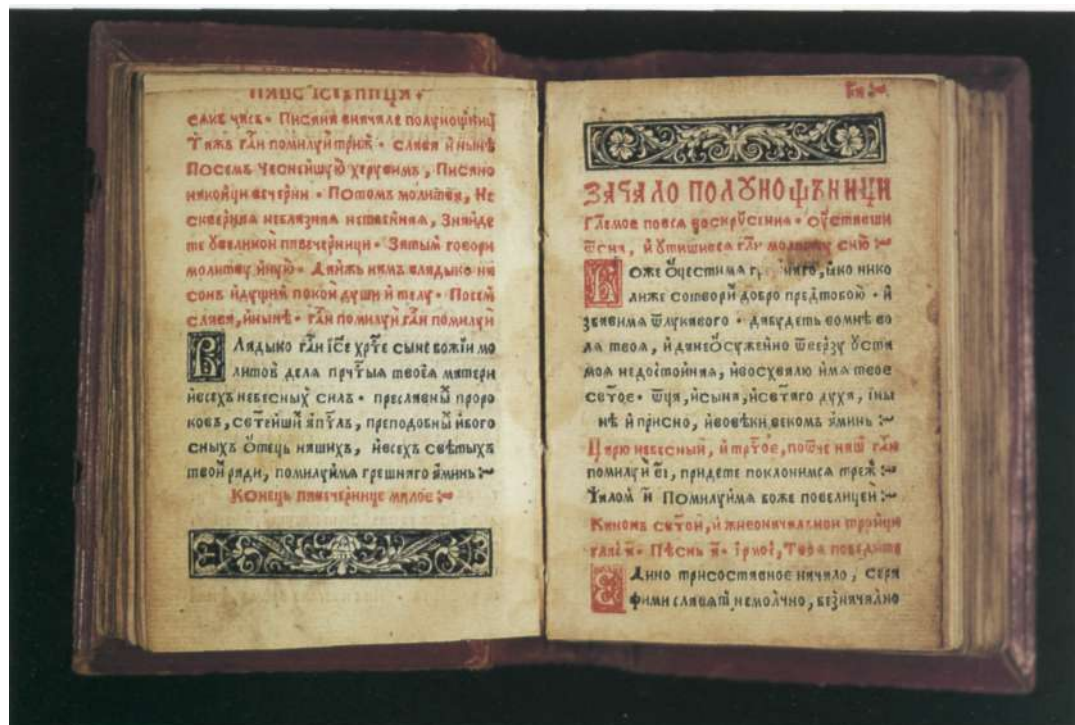 саже часъ • Писана вначале полунощниц
Тажъ гл҃и помилуй трижъ • слава и҆ ныне
Посемъ Чеснейшую херувимъ, Писано
накойци вечерни • Потомъ молитва, Не
скверная неблазная нетленная, Знайде
те ѹ великой павечерници • Затымъ говори
молитву иную • Даижъ намъ владыко на
сонъ идущий покой души и телу • Посем
слава, иныне • гд҃и помилуй гд҃и помилуй
Владыко гд҃и іс҃е хр҃те сыне божіи мо
литов дела прч҃тыа твоеа матери
ивсехъ небесныхъ силъ • преславный проро
ковъ, свт҃ейший ап҃тлъ, преподобный ибого
сныхъ ѻтець нашихъ, ивсехъ светыхъ
твой ради, помилуймѧ грешнаго аминь
конець павечернице малое
ЗАЧАЛО ПОЛꙊНОЩЬНИЦИ
гл҃емое повсѧ воскрс҃ениѧ • ѹставши
ѿсна, и ѹтишивсѧ гл҃и молитву сию
Боже ѻчестима го наго, ꙗко нико
лиже сотвори добро предтобою • и
збавима ѿлукавого • дабудеть вомне во
ла твоа, и дане ѻсужейно ѿверзу ѹста
моа недостойнаа, ивосхвалю има твое
свет҃ое • ѿца, исына, исвет҃аго духа, іны
не и присно, ивовеки векомъ аминь
Царю небесный, и тр҃тое, поѿче наш гд҃и
помилуй в҃і, придете поклонимса треж
Ѱалом н҃ Помилуйма боже повелицей
Канонъ свет҃ой, и живоначалной тройци
гласъ и҃ • Песнь а҃ • ірмос, Твоа победите
Едино трисоставное начало, сера
фими слават немолчно, безначално